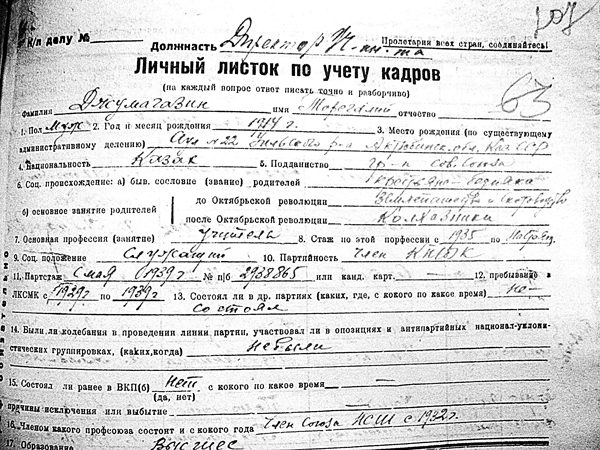 107
К/л делу №
Должнасть Директор
Пролетарии всех стран, соединяйтесь!
Личный листок по учету кадров
(на каждый вопрос ответ писать точно и разборчиво)
63
Фамилия Джумагазин имя отчество
1. Пол Муж 2. Год и месяц рождения 1914 г. 3. Место рождения (по существующему
административному делению) Аул №22 Уильского р-на Актюбинск. обл. Каз ССР
4. Национальность Казак 5. Подданство гр-н Сов. Союза
6. Соц. происхождение: а) быв. сословие (звание) родителей
б) основное занятие родителей
до Октябрьской революции Земледельство и скотоводство
после Октябрьской революции Колхозники
7. Основная профессия (занятие) Учитель 8. Стаж по этой порфессии с 1935 по
9. Соц. положение Служащий 10. Партийность Член
11. Партстаж С мая 1939 г № п|б 2938865 или канд. карт. — 12. пребывание в
ЛКСМК с 1929 г по 1939 г 13. Состоял ли в др. партиях (каких, где, с какого по какое время) не
состоял
14. Были ли колебания в проведении линии партии, участвовал ли в опозициях и антипартийных национал-уклони-
стических группировках, (каких, когда) не были
15. Состоял ли ранее в ВКП(б) нет с какого по какое время —
(да, нет)
причины исключения или выбытие —
16. Членом какого профсоюза состоит и с какого года Член Союза НСШ с 1932 г.
17. Образование Высшее